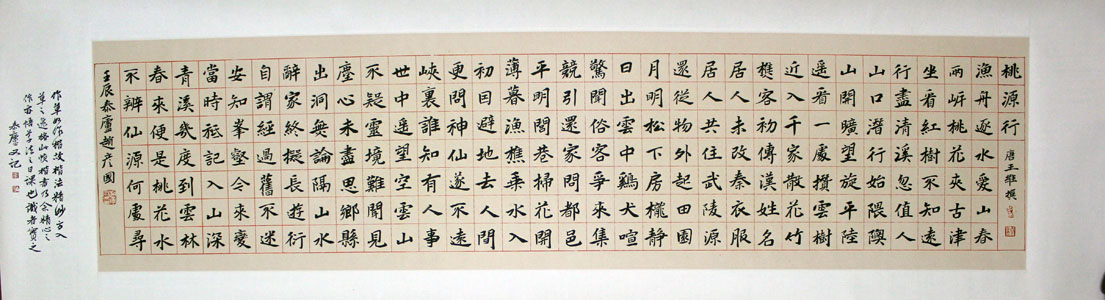 桃源行 唐王維撰
漁舟逐水愛山春
兩岍桃花夾古津
坐看紅樹不知遠
行盡清溪忽值人
山口潛行始隈隩
山開曠望旋平陸
遥看一處攢雲樹
近入千家散花竹
樵客初傳漢姓名
居人未改秦衣服
居人共住武陵源
還從物外起田園
月明松下房櫳靜
日出雲中鷄犬喧
驚聞俗客爭來集
競引還家問都邑
平明閭巷掃花開
薄暮漁樵乘水入
初因避地去人間
更問神仙遂不還
峽裏誰知有人事
世中遥望空雲山
不疑靈境難聞見
塵心未盡思鄉縣
出洞無論隔山水
辭家終擬長遊衍
自謂經過舊不迷
安知峯壑今來變
當時祗記入山深
青溪幾度到雲林
春來便是桃花水
不辨仙源何處尋
壬辰泰廬趙彥國
作草如作楷楷法精妙方入
草之
日課也識者寶之
泰廬又記